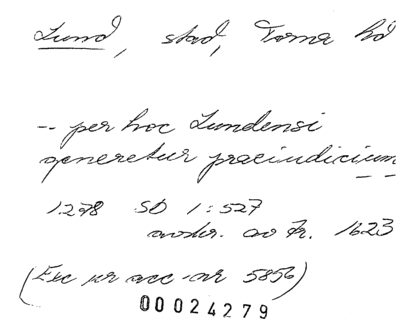 Lund, stad, Torna hd
-- per hoc Lundensi
generetur præiudicium
- -
1278 SD 1:527
avskr. av fr. 1623
(Exc ur acc-nr 5856)
00024279